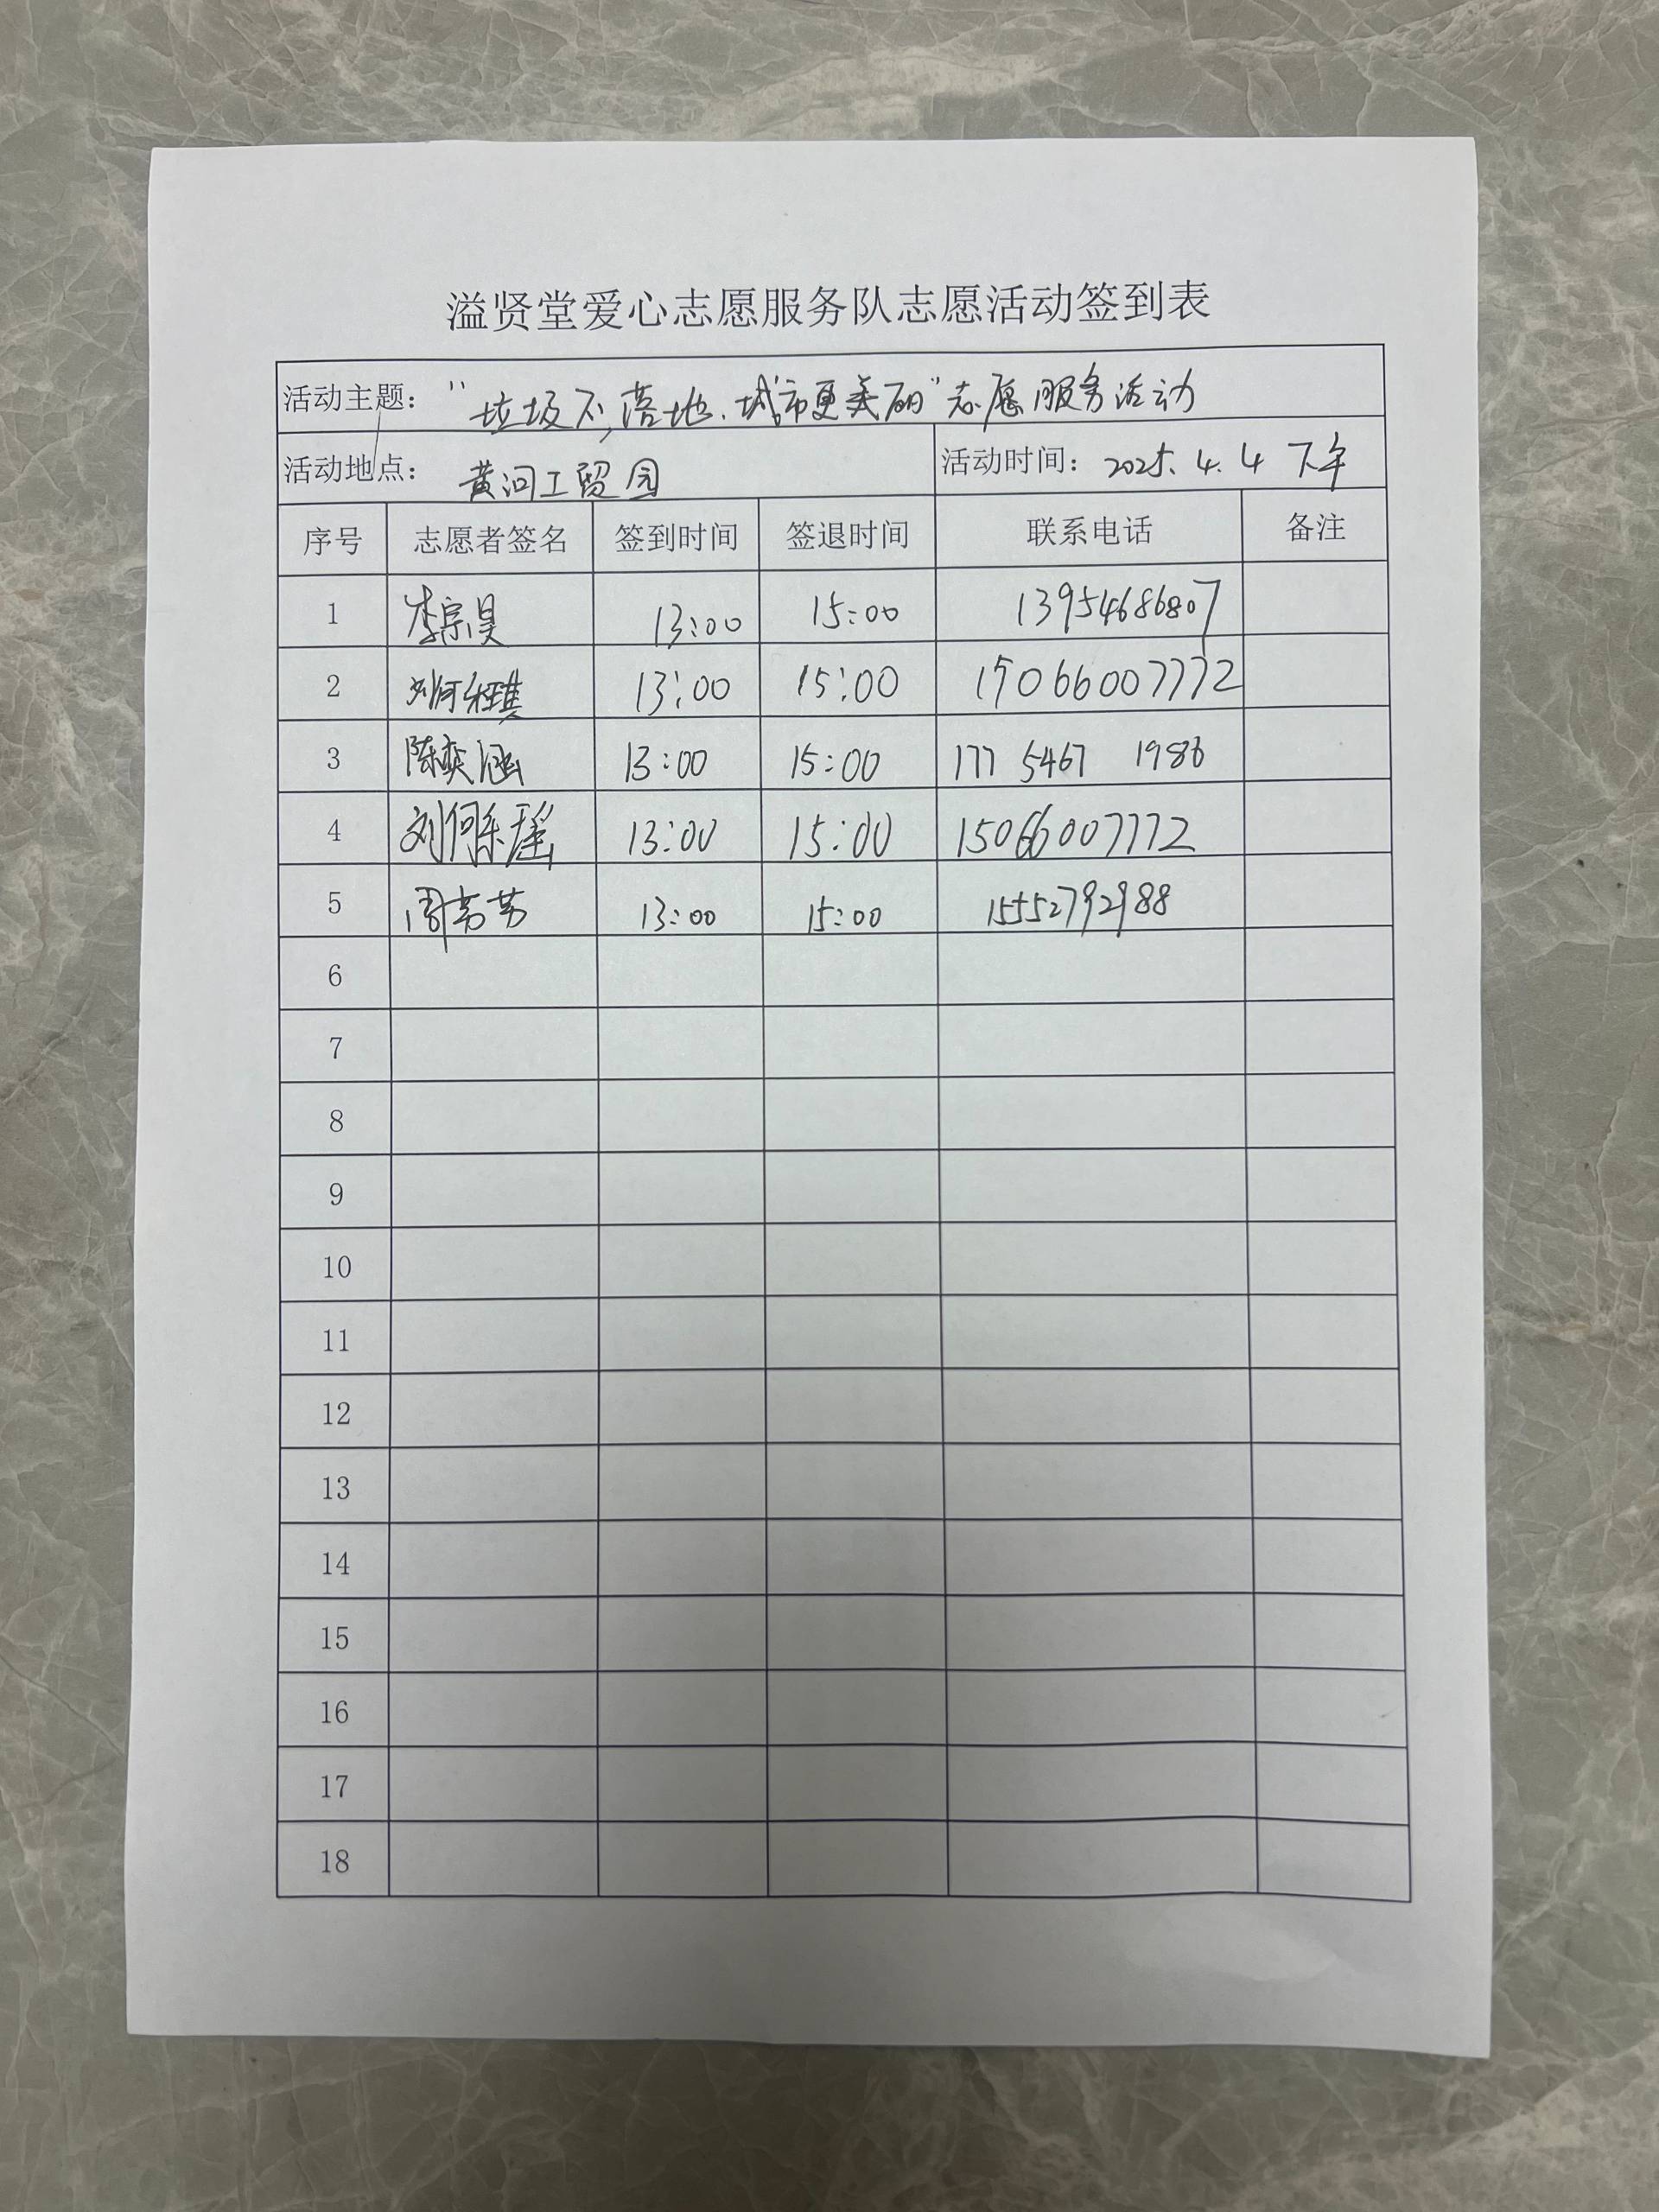 溢贤堂爱心志愿服务队志愿活动签到表
活动主题： “垃圾不落地，城市更美丽”志愿服务活动
活动地点： 黄河工贸园 活动时间： 2025.4.4 下午
序号 志愿者签名 签到时间 签退时间 联系电话 备注
1 李宗昊 13:00 15:00 13954686807
2 刘何 琪 13:00 15:00 15066007772
3 陈奕涵 13:00 15:00 177 5467 1986
4 刘何乐瑶 13:00 15:00 15066007772
5 周芳芳 13:00 15:00 15552792988
6
7
8
9
10
11
12
13
14
15
16
17
18